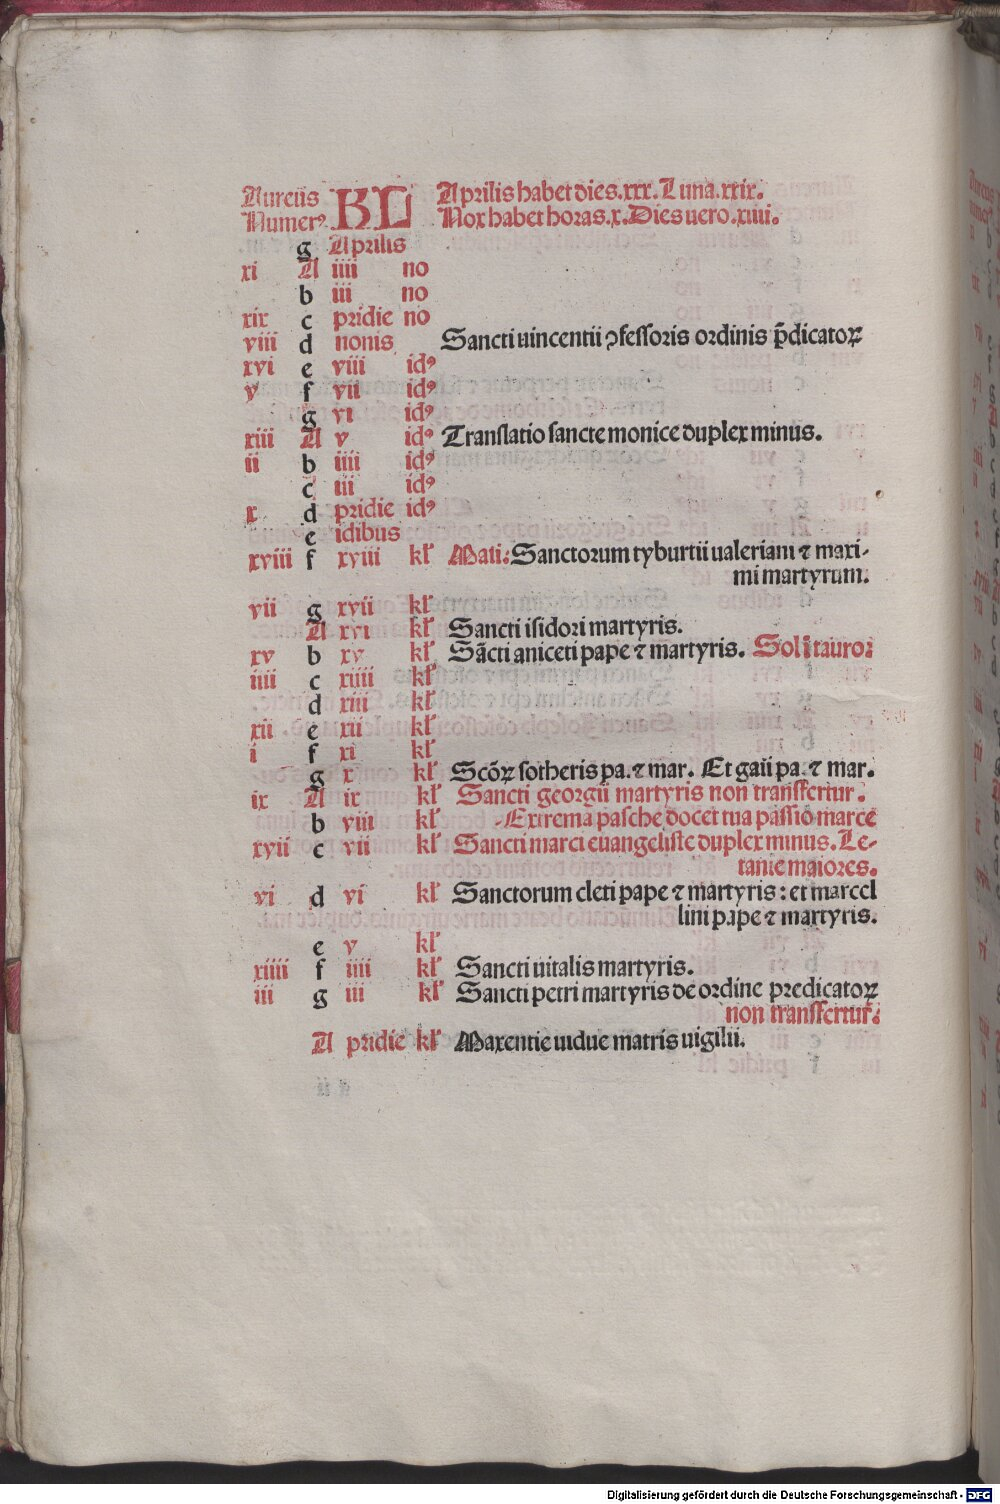 Aureus KL Aprilis habet dies.xxx.Luna.xxix.
Numerꝰ Nox habet horas.x.Dies uero.xiiii.
g Aprilis
xi A iiii no
b iii no
xix c pridie no
viii d nonis Sancti uincentii ꝯfessoris ordinis p̄dicatoꝝ
xvi e viii idꝰ
v f vii idꝰ
g vi idꝰ
xiii A v idꝰ Translatio sancte monice duplex minus.
ii b iiii idꝰ
c iii idꝰ
x d pridie idꝰ
e idibus
xviii f xviii kl' Mati: Sanctorum tyburtii ualeriani ⁊ maxi-
mi martyrum.
vii g xvii kl'
A xvi kl' Sancti isidori martyris.
xv b xv kl' Sācti aniceti pape ⁊ martyris. Sol ī tauro:
iiii c xiiii kl'
d xiii kl'
xii e xii kl'
i f xi kl'
g x kl' Scōꝝ sotheris pa. ⁊ mar. Et gaii pa. ⁊ mar.
ix A ix kl' Sancti georgii martyris non transfertur.
b viii kl' Extrema pasche docet tua passio marce
xvii c vii kl' Sancti marci euangeliste duplex minus. Le-
tanie maiores.
vi d vi kl' Sanctorum cleti pape ⁊ martyris: et marcel
lini pape ⁊ martyris.
e v kl'
xiiii f iiii kl' Sancti uitalis martyris.
iii g iii kl' Sancti petri martyris de ordine predicatoꝝ
non transfertur.
A pridie kl' Maxentie uidue matris uigilii.
Digitalisierung gefördert durch die Deutsche Forschungsgemeinschaft - DFG